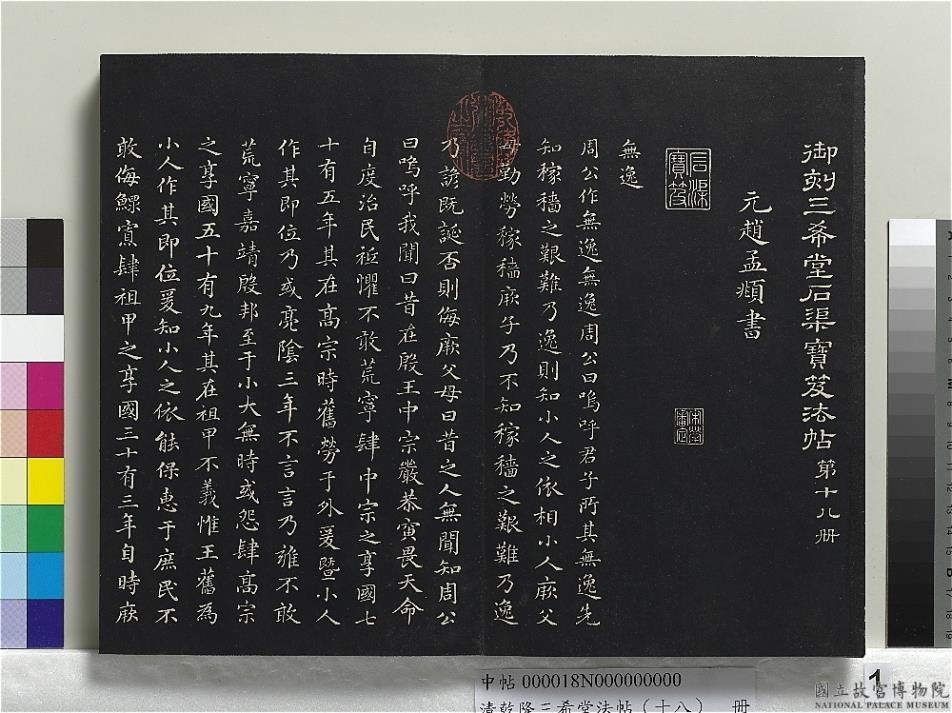 御刻三希堂石渠寶笈法帖第十八册
元趙孟頫書
石渠寶笈
無逸
周公作無逸無逸周公曰嗚呼君子所其無逸先
知稼穡之艱難乃逸則知小人之依相小人厥父
母勤勞稼穡厥子乃不知稼穡之艱難乃逸
乃諺既誕否則侮厥父母曰昔之人無聞知周公
曰嗚呼我聞曰昔在殷王中宗嚴恭寅畏天命
自度治民祗懼不敢荒寧肆中宗之享國七
十有五年其在髙宗時舊勞于外爰暨小人
作其即位乃或亮陰三年不言言乃雍不敢
荒寧嘉靖殷邦至于小大無時或怨肆髙宗
之享國五十有九年其在祖甲不義惟王舊為
小人作其即位爰知小人之依能保惠于庶民不
敢侮鰥寡肆祖甲之享國三十有三年自時厥
中帖 000018N000000000
清乾隆三希堂法帖（十八） 册
1
國立故宮博物院
NATIONAL PALACE MUSEUM